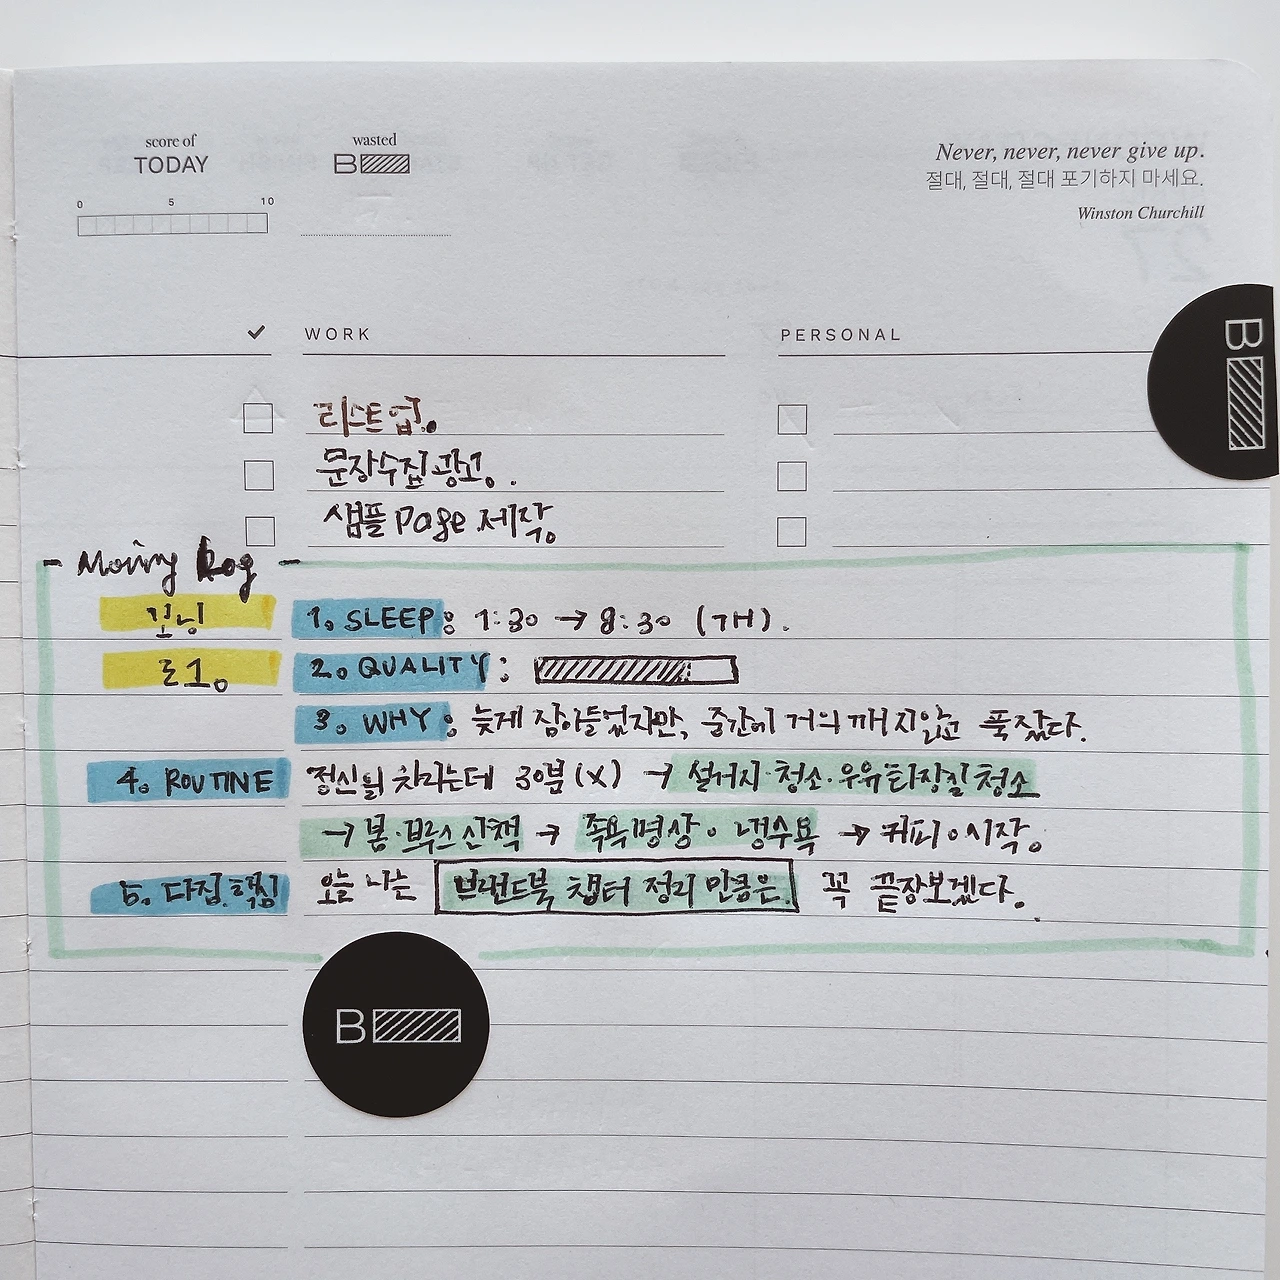 score of
TODAY
0 5 10
wasted
B
Never, never, never give up.
절대, 절대, 절대 포기하지 마세요.
Winston Churchill
✓ WORK PERSONAL
B
리스트업.
문장수집 광고.
샘플 Page 제작.
- Morning Log -
모닝 1. SLEEP: 1:30 → 8:30 (7H).
로그. 2. QUALITY:
3. WHY: 늦게 잠이들었지만, 중간에 거의 깨지않고 푹잤다.
4. ROUTINE 정신 차리는데 30분(X) → 설거지·청소·우유 화장실 청소
→ 봄·브루스 산책 → 족욕명상. 냉수욕 → 커피. 시작.
5. 다짐.핵심 오늘 나는 브랜드북 챕터 정리 만큼은. 꼭 끝장보겠다.
B